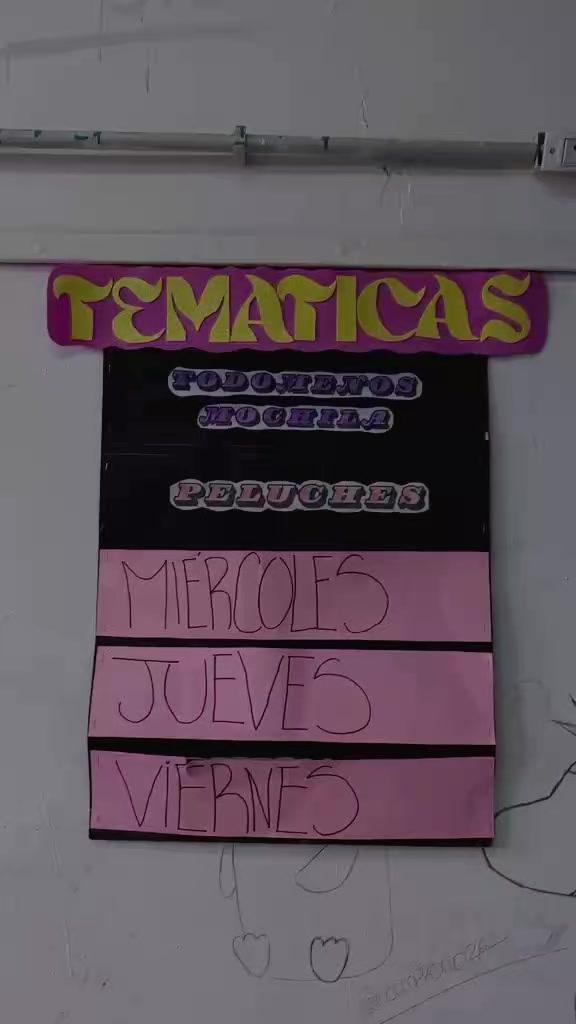 TEMATICAS
TODOMENOS
MOCHILA
PELUCHES
MIÉRCOLES
JUEVES
VIERNES